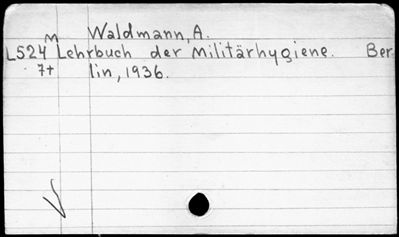 M Waldmann, A.
L524 Lehrbuch der Militärhygiene. Ber
7+ lin, 1936.